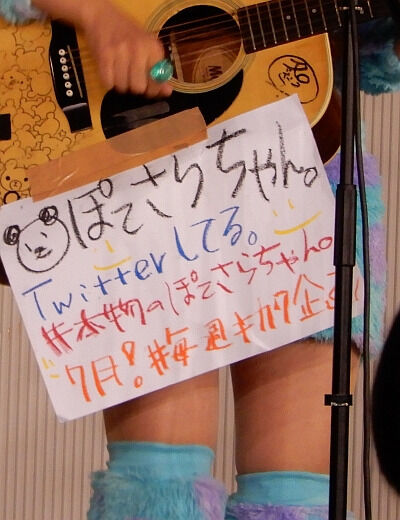 ぽてさらちゃん。
Twitterしてる。
#本物のぽてさらちゃん。
7月!#毎週キカク企